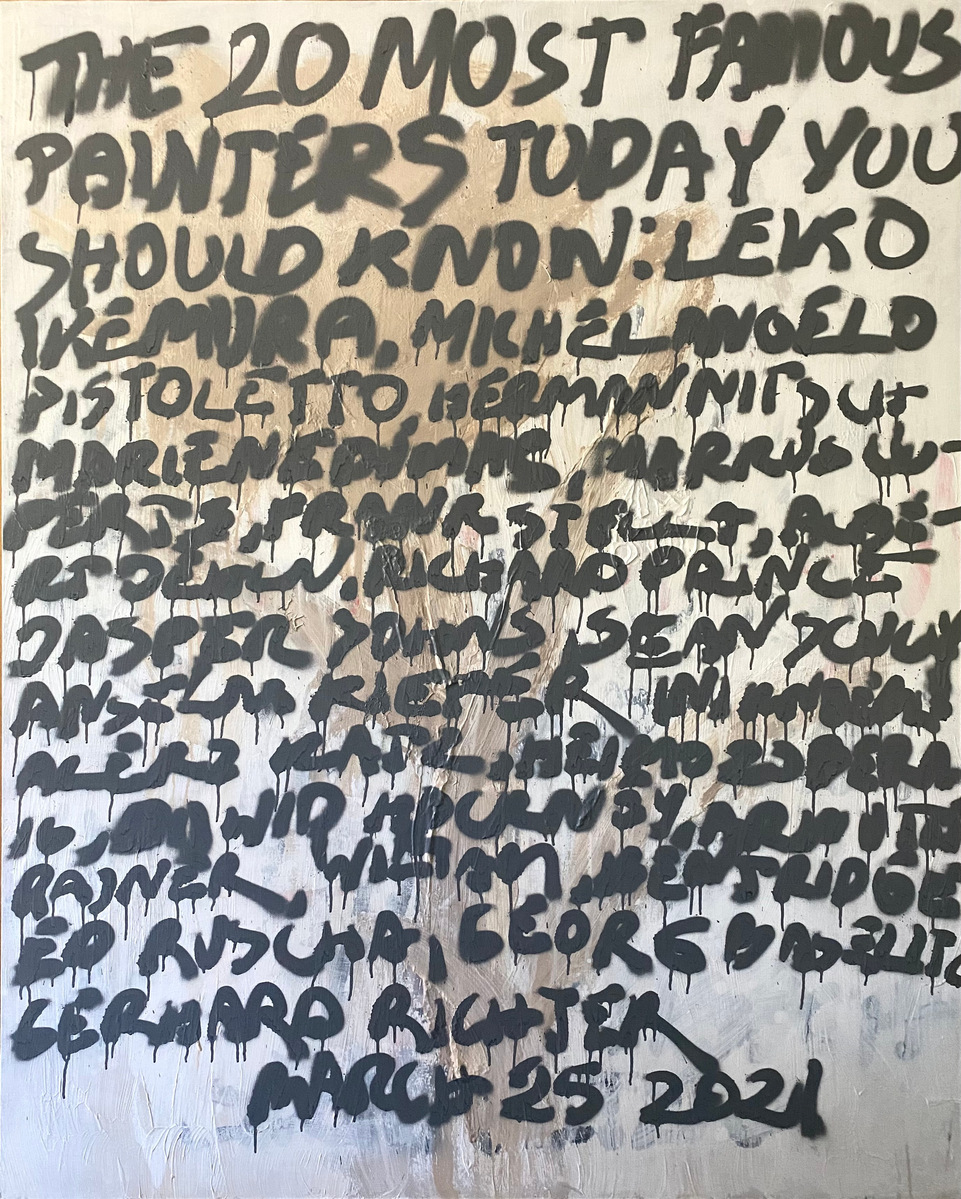 THE 20 MOST FAMOUS
PAINTERS TODAY YOU
SHOULD KNOW: LEIKO
IKEMURA, MICHELANGELO
PISTOLETTO, HERMANN NITSCH
MARLENE DUMAS, MARKUS LÜ-
PERTZ, FRANK STELLA, ALBE-
RT OEHLEN, RICHARD PRINCE
JASPER JOHNS, SEAN SCULLY
ANSELM KIEFER,
ALEX KATZ, HEIMO ZOBERN
IG, DAVID HOCKNEY, ARNULF
RAINER, WILLIAM KENTRIDGE
ED RUSCHA, GEORG BASELITZ
GERHARD RICHTER
MARCH 25 2021